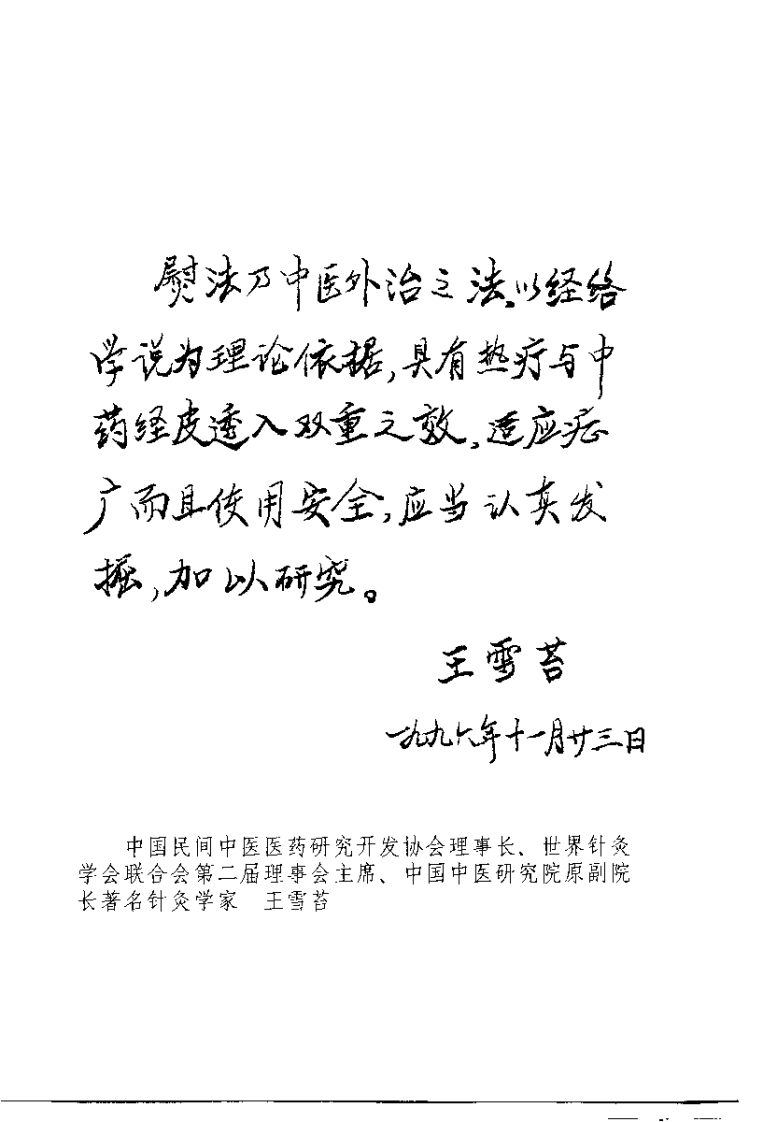 熨法乃中医外治之法，以经络
学说为理论依据，具有热疗与中
药经皮透入双重之效，适应症
广而且使用安全，应当认真发
掘，加以研究。
王雪苔
一九九六年十一月廿三日
中国民间中医医药研究开发协会理事长、世界针灸
学会联合会第二届理事会主席、中国中医研究院原副院
长著名针灸学家　王雪苔